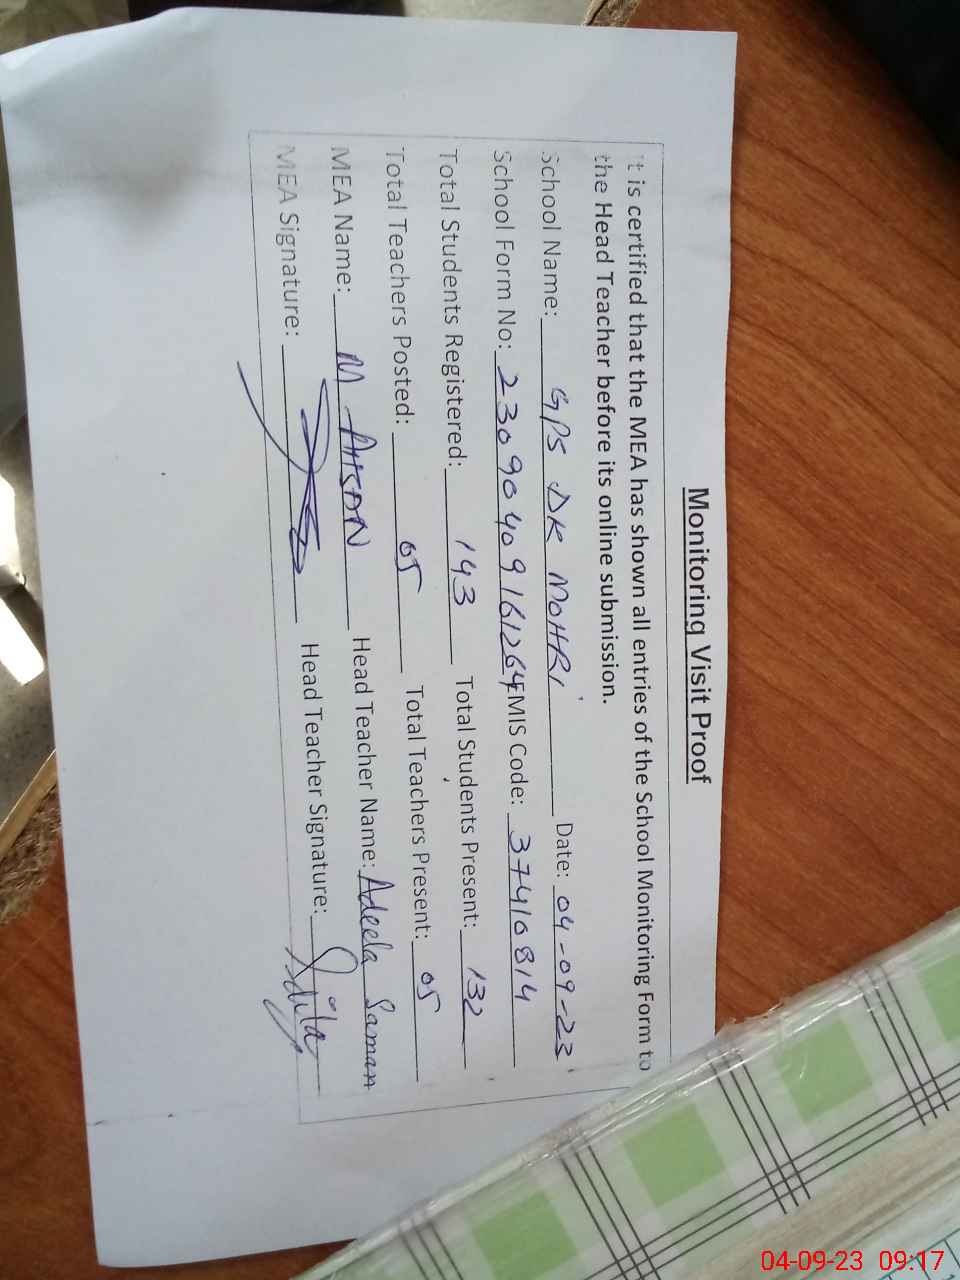 Monitoring Visit Proof
It is certified that the MEA has shown all entries of the School Monitoring Form to
the Head Teacher before its online submission.
School Name: GPS DK MOHRI Date: 04-09-23
School Form No: 23090409161264 EMIS Code: 37410814
Total Students Registered: 143 Total Students Present: 132
Total Teachers Posted: 05 Total Teachers Present: 05
MEA Name: M AHSAN Head Teacher Name: Adeela Saman
MEA Signature: Head Teacher Signature: Adila
04-09-23 09:17